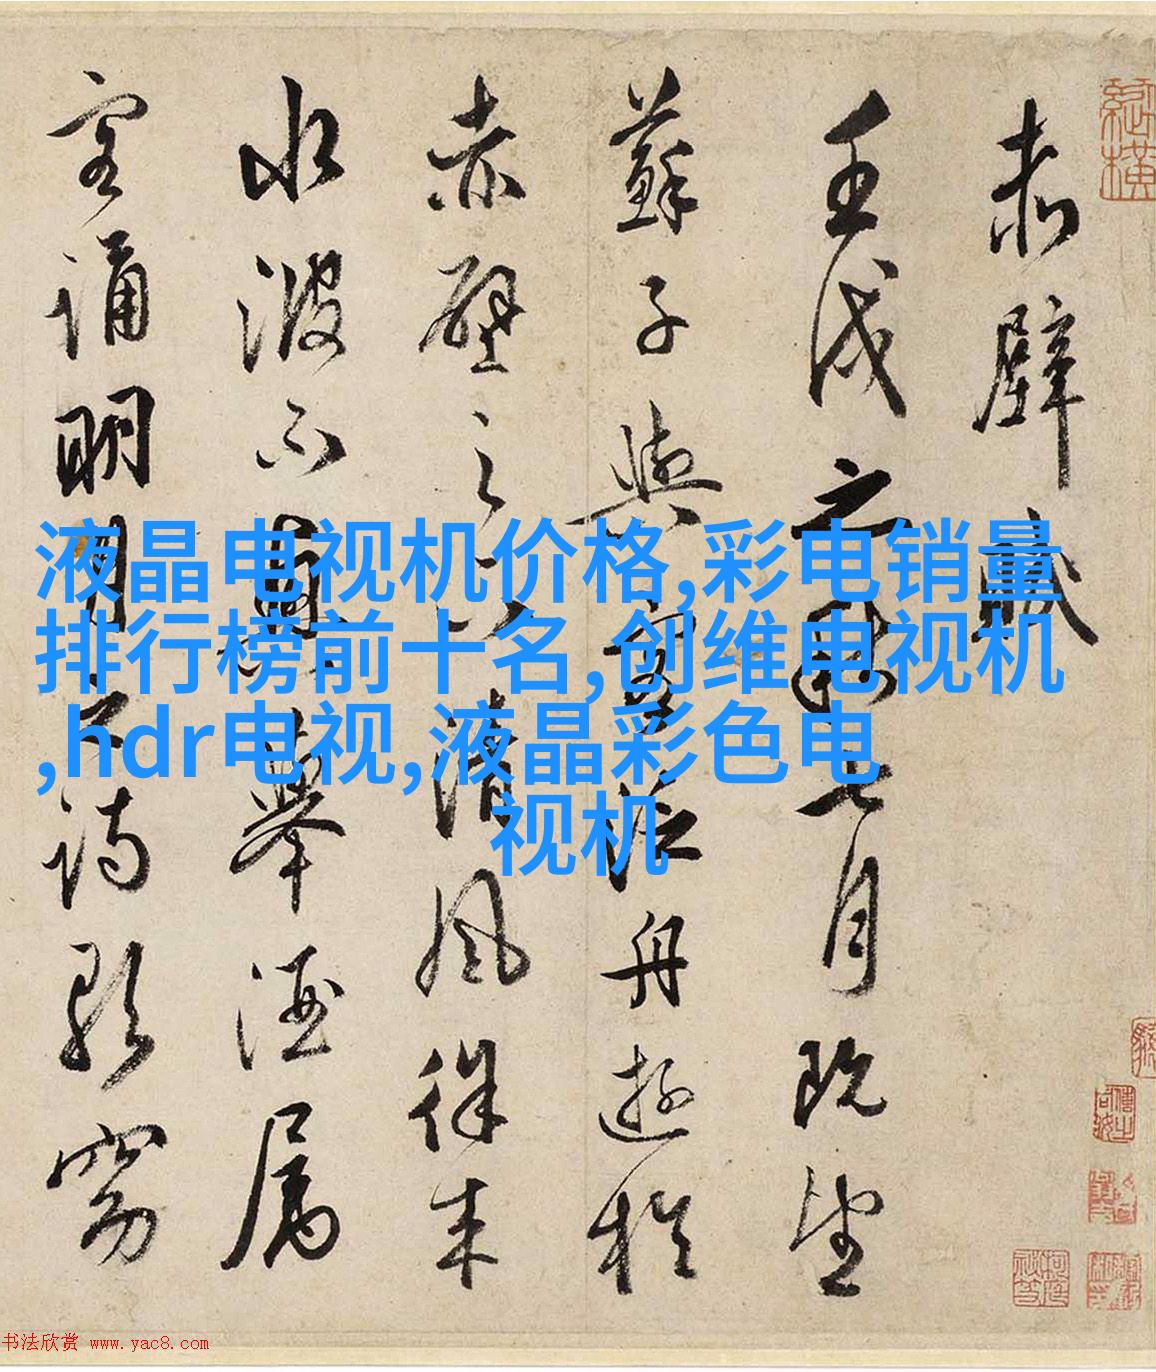 赤壁賦
壬戌之秋七月既望
蘇子與客泛舟遊於
赤壁之下清風徐来
水波不興舉酒屬
客誦明月之詩歌窈
液晶电视机价格,彩电销量
排行榜前十名,创维电视机
,hdr电视,液晶彩色电
视机
书法欣赏 www.yac8.com